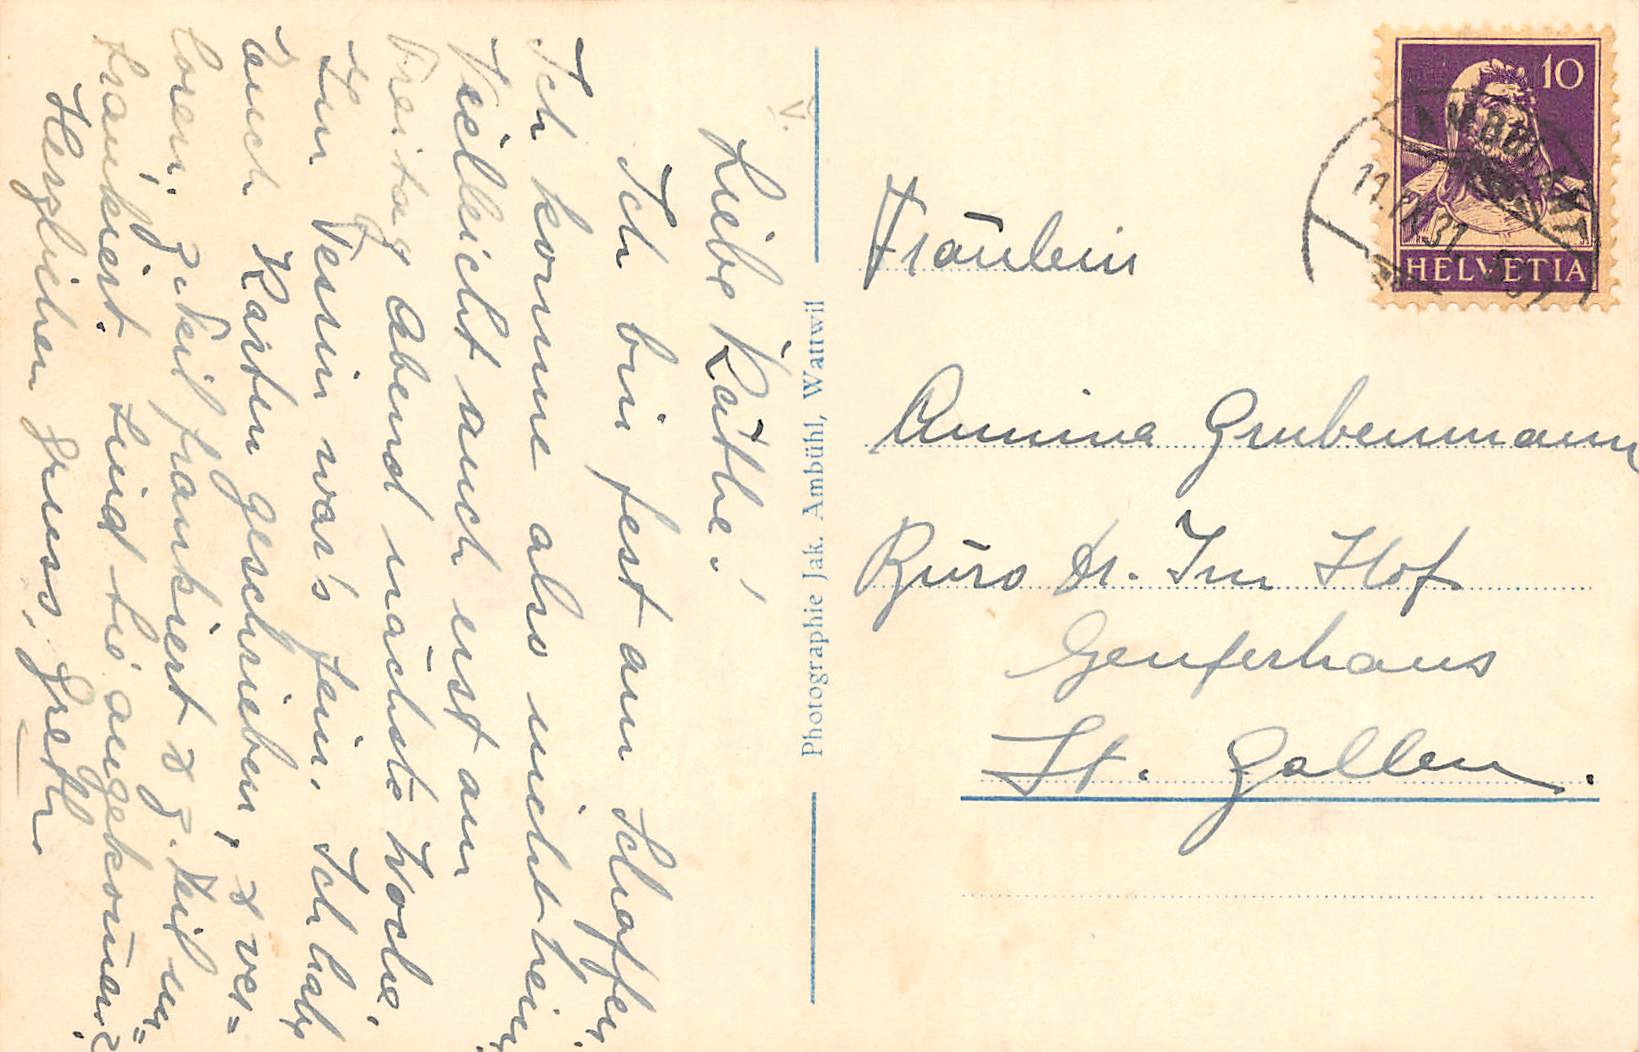 V.
Liebe Käthe!
Ich bin fest am Schaffen.
Ich komme also nicht heim,
Vielleicht auch erst am
Freitag Abend nächste Woche.
Im Tessin war's fein. Ich habe
auch Karten geschrieben, & ver=
loren, z. Teil frankiert & z. Teil un=
frankiert. Sind sie angekommen?
Herzlichen Gruss, Gretli.
Photographie Jak. Ambühl, Wattwil
10
HELVETIA
11.IX.31
Fräulein
Annina Grubenmann
Büro Dr. Im Hof
Genferhaus
St. Gallen.